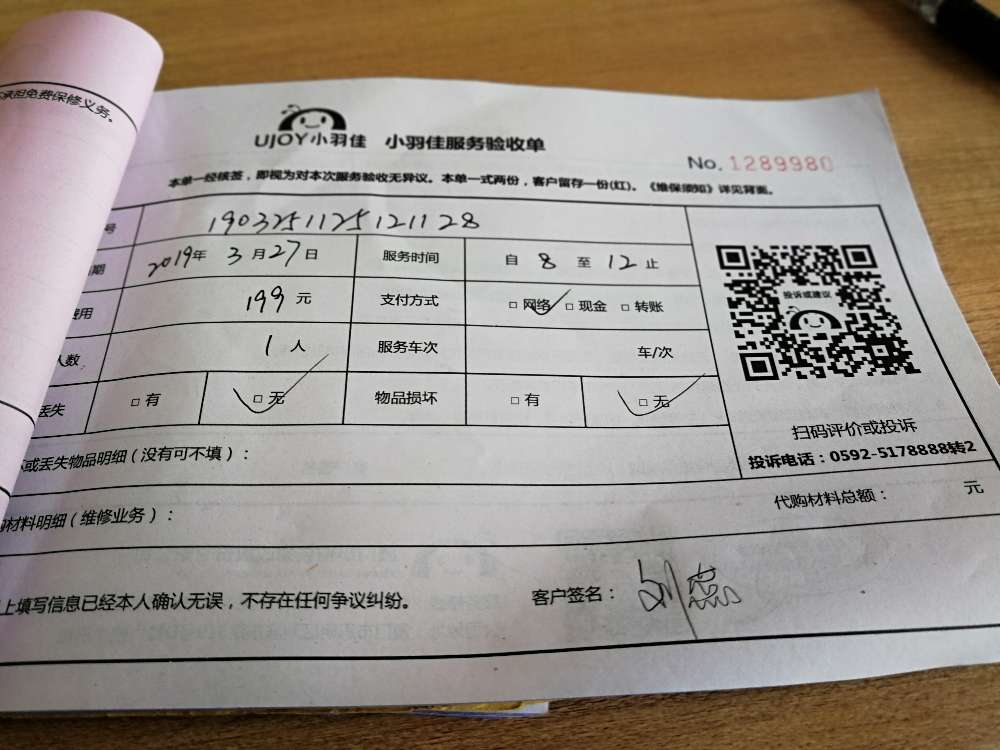 承担免费保修义务。
UJOY小羽佳 小羽佳服务验收单
No. 1289980
本单一经核签，即视为对本次服务验收无异议。本单一式两份，客户留存一份(红)。《维保须知》详见背面。
号 1903251125121128
期 2019年 3月27日 服务时间 自 8 至 12 止
费用 199 元 支付方式 □ 网络 □ 现金 □ 转账
人数 1 人 服务车次 车/次
丢失 □ 有 □ 无 物品损坏 □ 有 □ 无
投诉或建议
扫码评价或投诉
投诉电话：0592-5178888转2
或丢失物品明细（没有可不填）：
材料明细（维修业务）： 代购材料总额： 元
上填写信息已经本人确认无误，不存在任何争议纠纷。 客户签名： 刘蕊